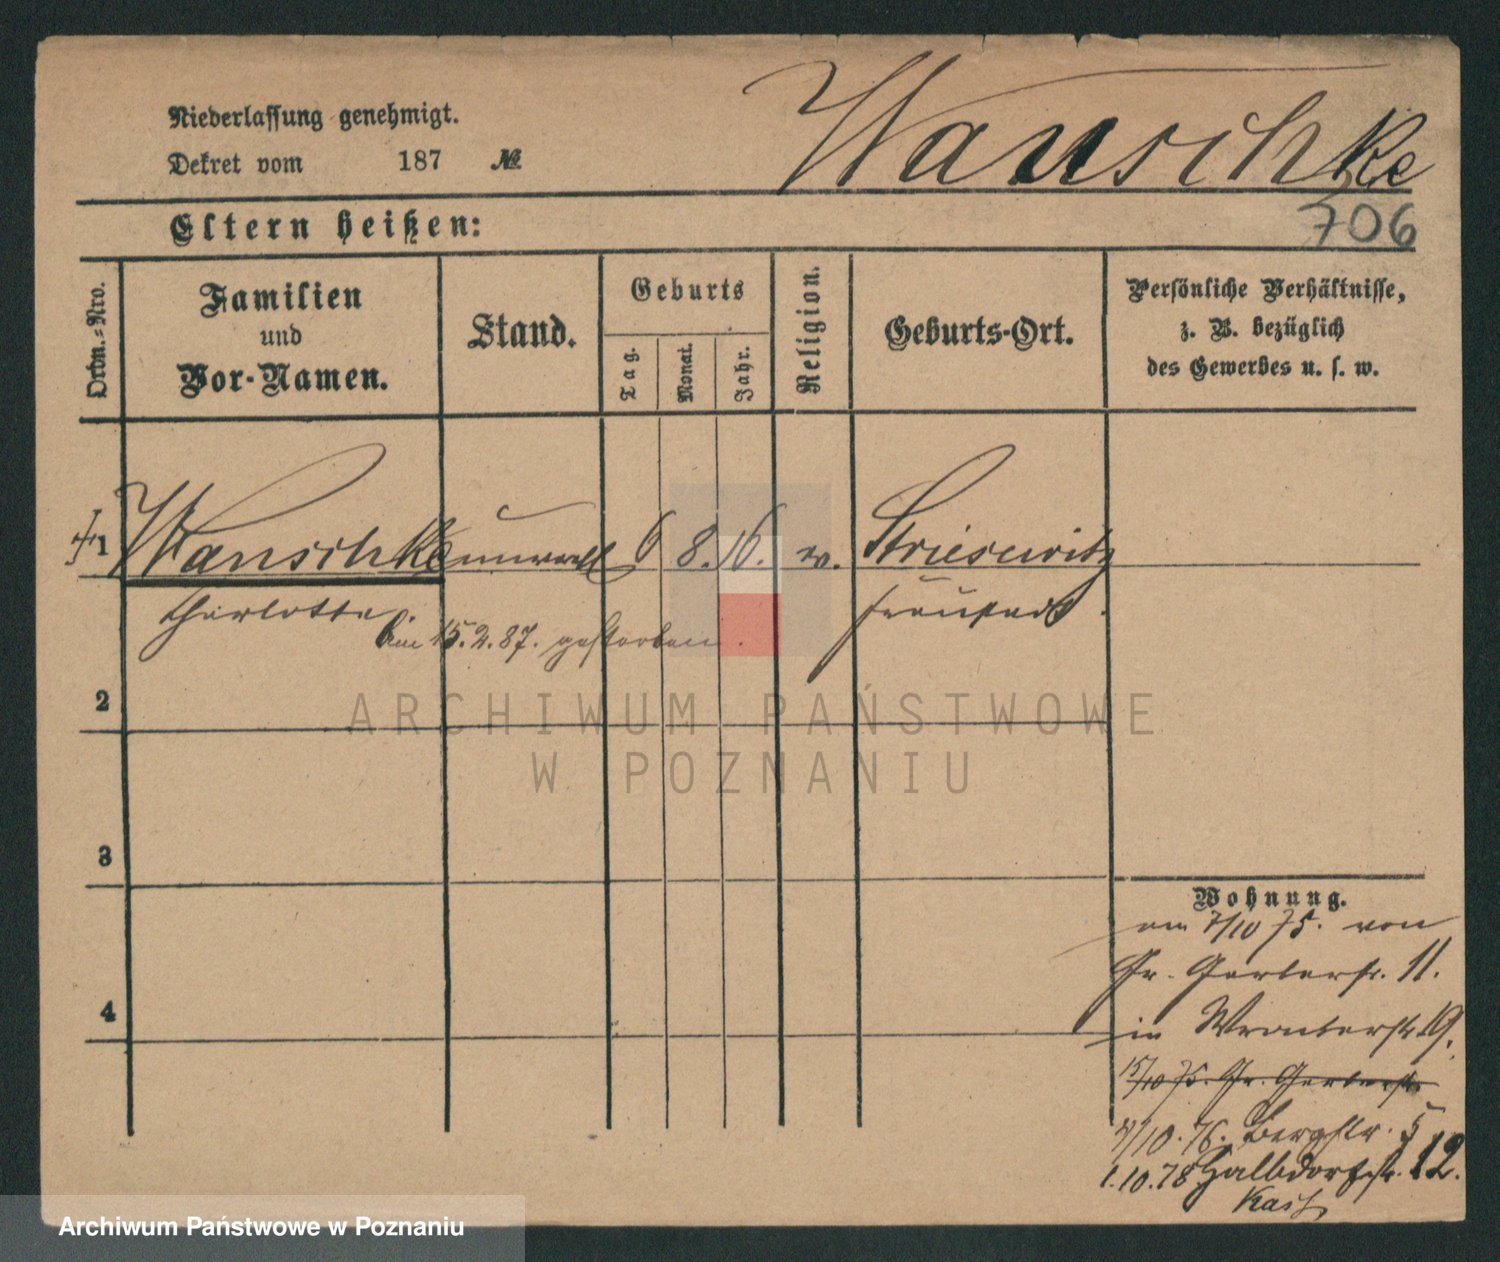 Wauschke
Niederlassung genehmigt.
Dekret vom 187 №
706
Eltern heißen:
Ordn.-Nro.
Familien
und
Vor-Namen.
Stand.
Geburts
Tag.
Monat.
Jahr.
Religion.
Geburts-Ort.
Persönliche Verhältnisse,
z. B. bezüglich
des Gewerbes u. s. w.
1 Wauschke unverehl 6 8. 16. ev. Striesewitz
Charlotte. Fraustadt.
Am 15.2.87. gestorben.
2
3
4
Wohnung.
am 7/10 75. von
Gr. Gerberstr. 11.
in 19.
15/10 75. Gr. Gerberstr.
10. 76. Bergstr. 5
1.10.78 Halbdorfstr. 12.
ARCHIWUM PAŃSTWOWE
W POZNANIU
Archiwum Państwowe w Poznaniu